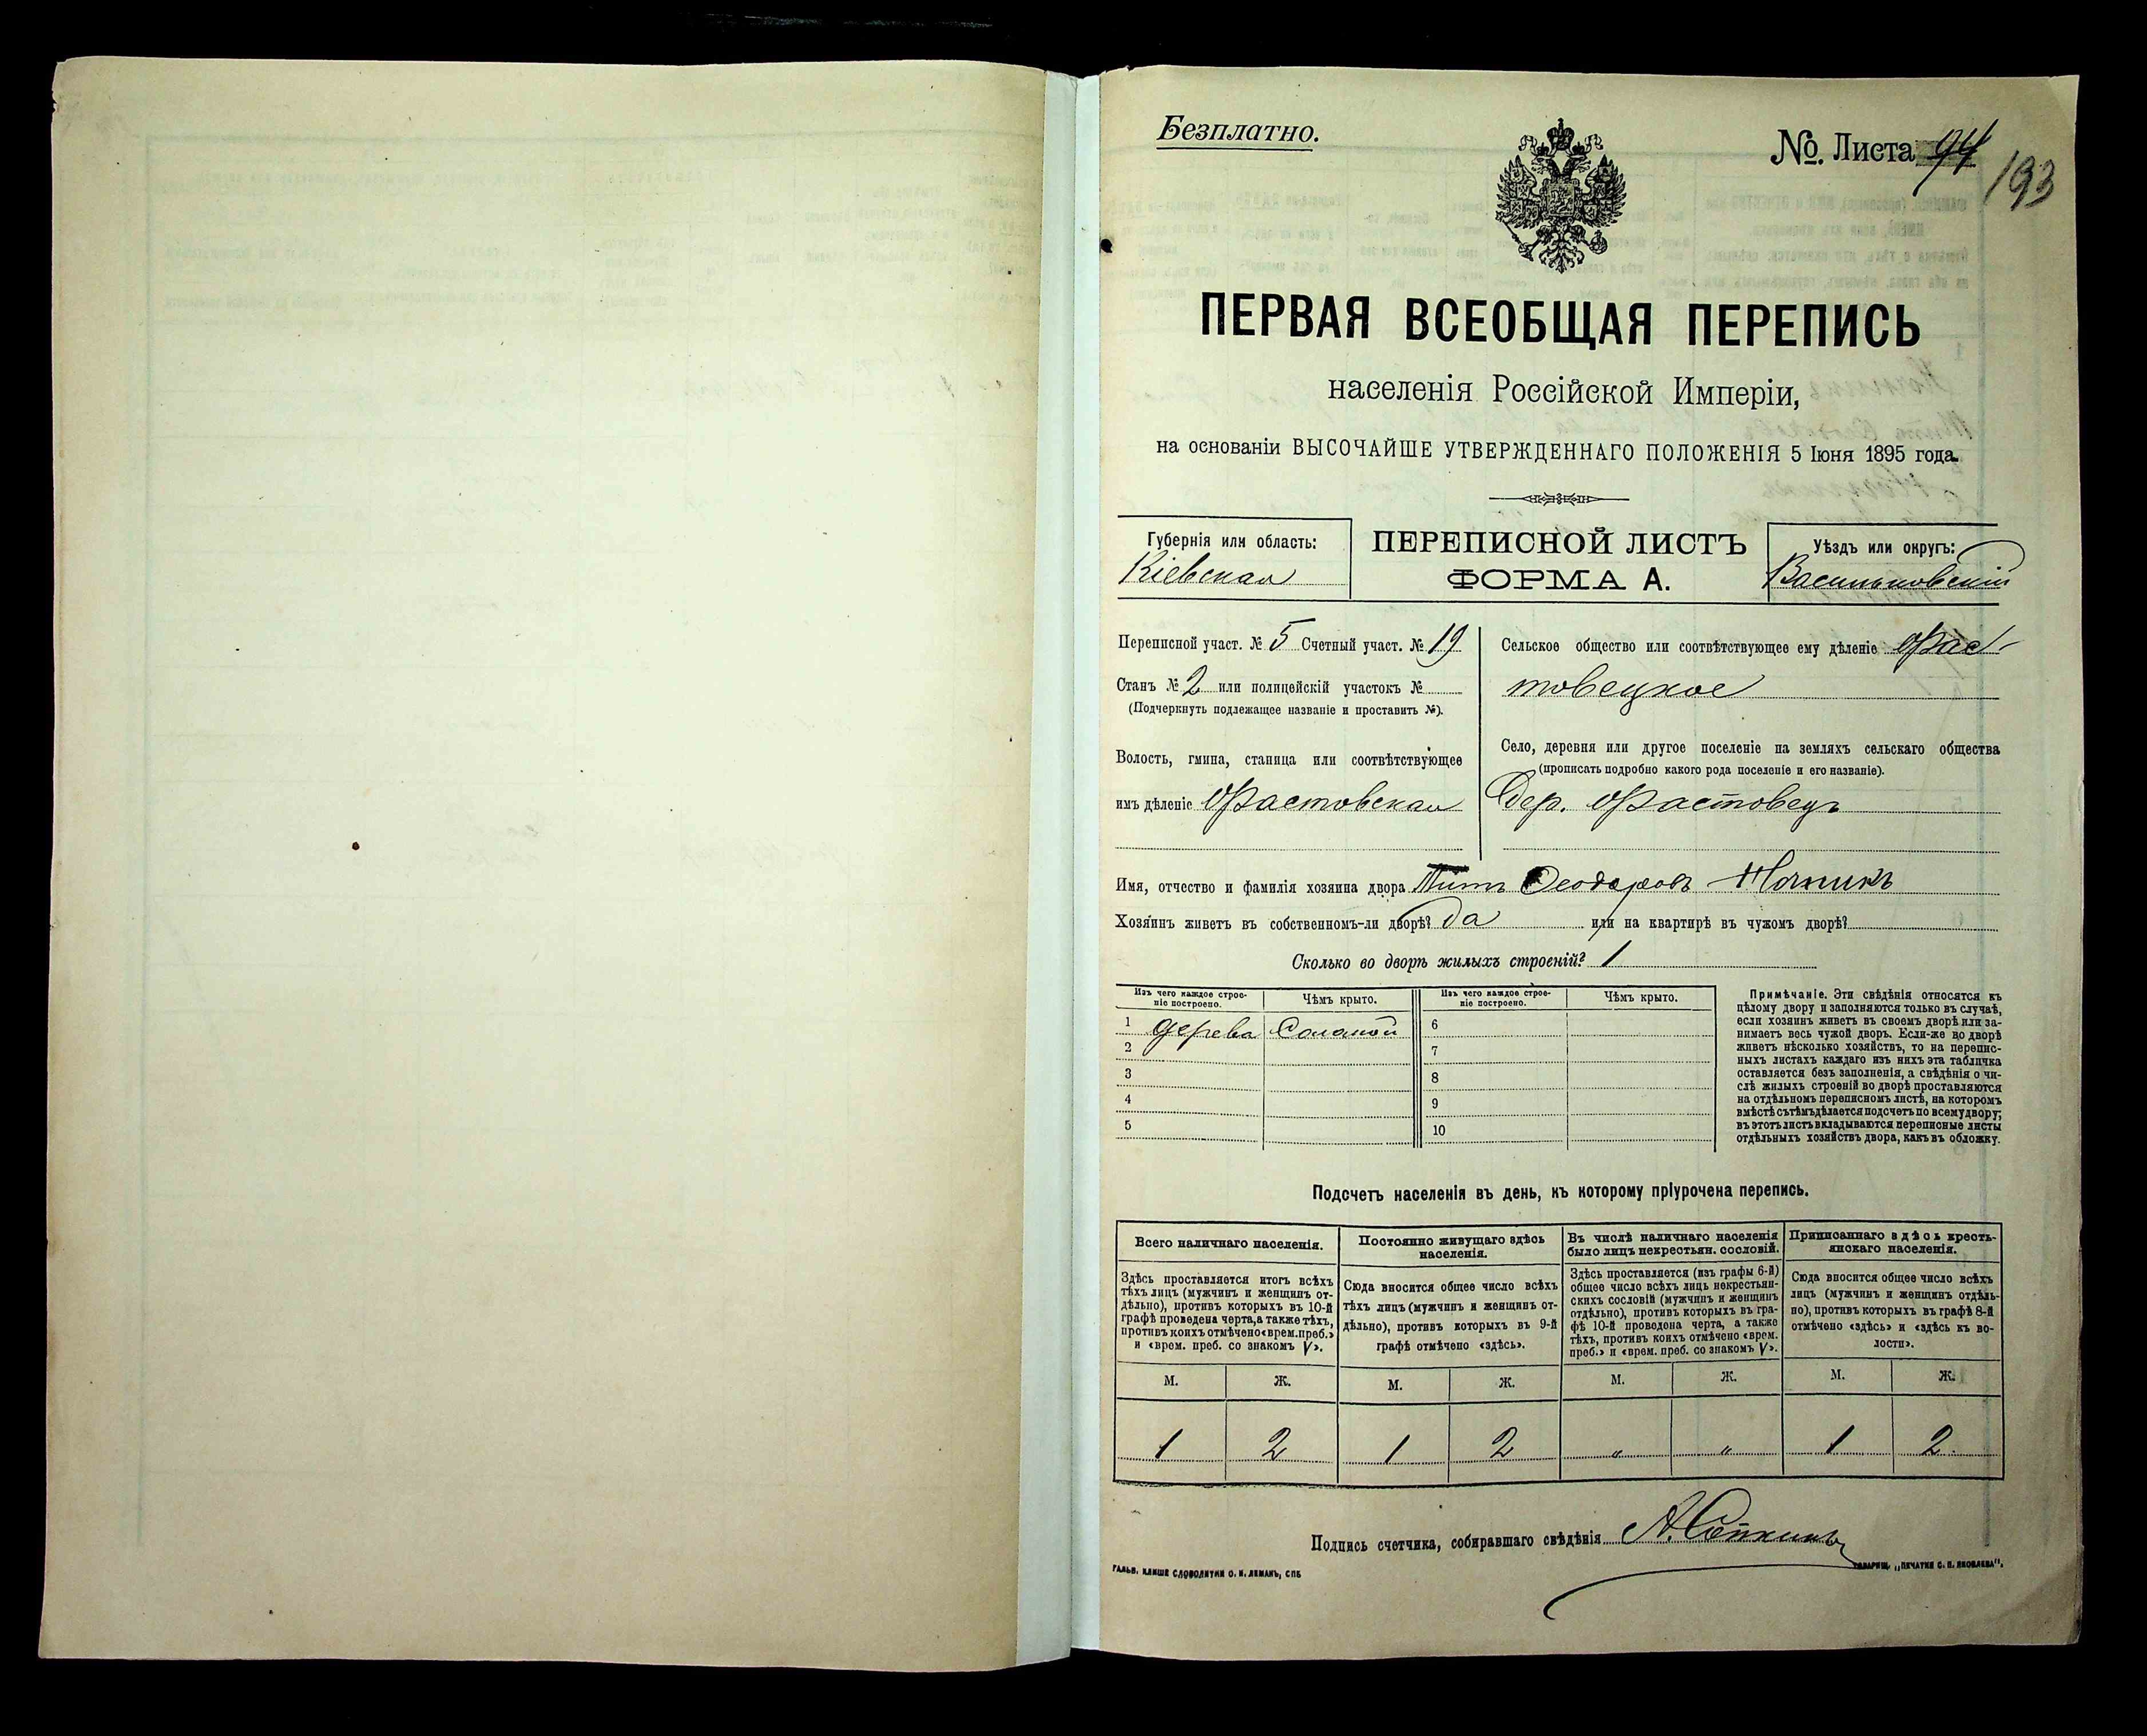 Безплатно.
№ Листа 94
193
ПЕРВАЯ ВСЕОБЩАЯ ПЕРЕПИСЬ
населенія Россійской Имперіи,
на основаніи ВЫСОЧАЙШЕ УТВЕРЖДЕННАГО ПОЛОЖЕНІЯ 5 Іюня 1895 года.
Губернія или область:
Кіевская
ПЕРЕПИСНОЙ ЛИСТЪ
ФОРМА А.
Уѣздъ или округъ:
Васильковскій
Переписной участ. № 5 Счетный участ. № 19
Станъ № 2 или полицейскій участокъ №
(Подчеркнуть подлежащее названіе и проставить №).
Волость, гмина, станица или соотвѣтствующее
имъ дѣленіе Фастовская
Сельское общество или соотвѣтствующее ему дѣленіе Фас-
товецкое
Село, деревня или другое поселеніе на земляхъ сельскаго общества
(прописать подробно какого рода поселеніе и его названіе).
Дер. Фастовецъ
Имя, отчество и фамилія хозяина двора Титъ Ѳеодоровъ
Хозяинъ живетъ въ собственномъ-ли дворѣ? да или на квартирѣ въ чужомъ дворѣ?
Сколько во дворѣ жилыхъ строеній? 1
Изъ чего каждое строе-
ніе построено.
Чѣмъ крыто.
Изъ чего каждое строе-
ніе построено.
Чѣмъ крыто.
1 дерева Соломой
2
3
4
5
6
7
8
9
10
Примѣчаніе. Эти свѣдѣнія относятся къ
цѣлому двору и заполняются только въ случаѣ,
если хозяинъ живетъ въ своемъ дворѣ или за-
нимаетъ весь чужой дворъ. Если-же во дворѣ
живетъ нѣсколько хозяйствъ, то на перепис-
ныхъ листахъ каждаго изъ нихъ эта табличка
оставляется безъ заполненія, а свѣдѣнія о чи-
слѣ жилыхъ строеній во дворѣ проставляются
на отдѣльномъ переписномъ листѣ, на которомъ
вмѣстѣ съ тѣмъ дѣлается подсчетъ по всему двору;
въ этотъ листъ вкладываются переписные листы
отдѣльныхъ хозяйствъ двора, какъ въ обложку.
Подсчетъ населенія въ день, къ которому пріурочена перепись.
Всего наличнаго населенія.
Здѣсь проставляется итогъ всѣхъ
тѣхъ лицъ (мужчинъ и женщинъ от-
дѣльно), противъ которыхъ въ 10-й
графѣ проведена черта, а также тѣхъ,
противъ коихъ отмѣчено «врем. преб.»
и «врем. преб. со знакомъ V».
Постоянно живущаго здѣсь
населенія.
Сюда вносится общее число всѣхъ
тѣхъ лицъ (мужчинъ и женщинъ от-
дѣльно), противъ которыхъ въ 9-й
графѣ отмѣчено «здѣсь».
Въ числѣ наличнаго населенія
было лицъ некрестьян. сословій.
Здѣсь проставляется (изъ графы 6-й)
общее число всѣхъ лицъ некрестьян-
скихъ сословій (мужчинъ и женщинъ
отдѣльно), противъ которыхъ въ гра-
фѣ 10-й проведена черта, а также
тѣхъ, противъ коихъ отмѣчено «врем.
преб.» и «врем. преб. со знакомъ V».
Приписаннаго здѣсь кресть-
янскаго населенія.
Сюда вносится общее число всѣхъ
лицъ (мужчинъ и женщинъ отдѣль-
но), противъ которыхъ въ графѣ 8-й
отмѣчено «здѣсь» и «здѣсь къ во-
лости».
М. Ж. М. Ж. М. Ж. М. Ж.
1 2 1 2 " " 1 2
Подпись счетчика, собиравшаго свѣдѣнія
ГАЛЬВ. КЛИШЕ СЛОВОЛИТНИ О. И. ЛЕМАНЪ, СПБ
ТОВАРИЩ. „ПЕЧАТНЯ С. П. ЯКОВЛЕВА".